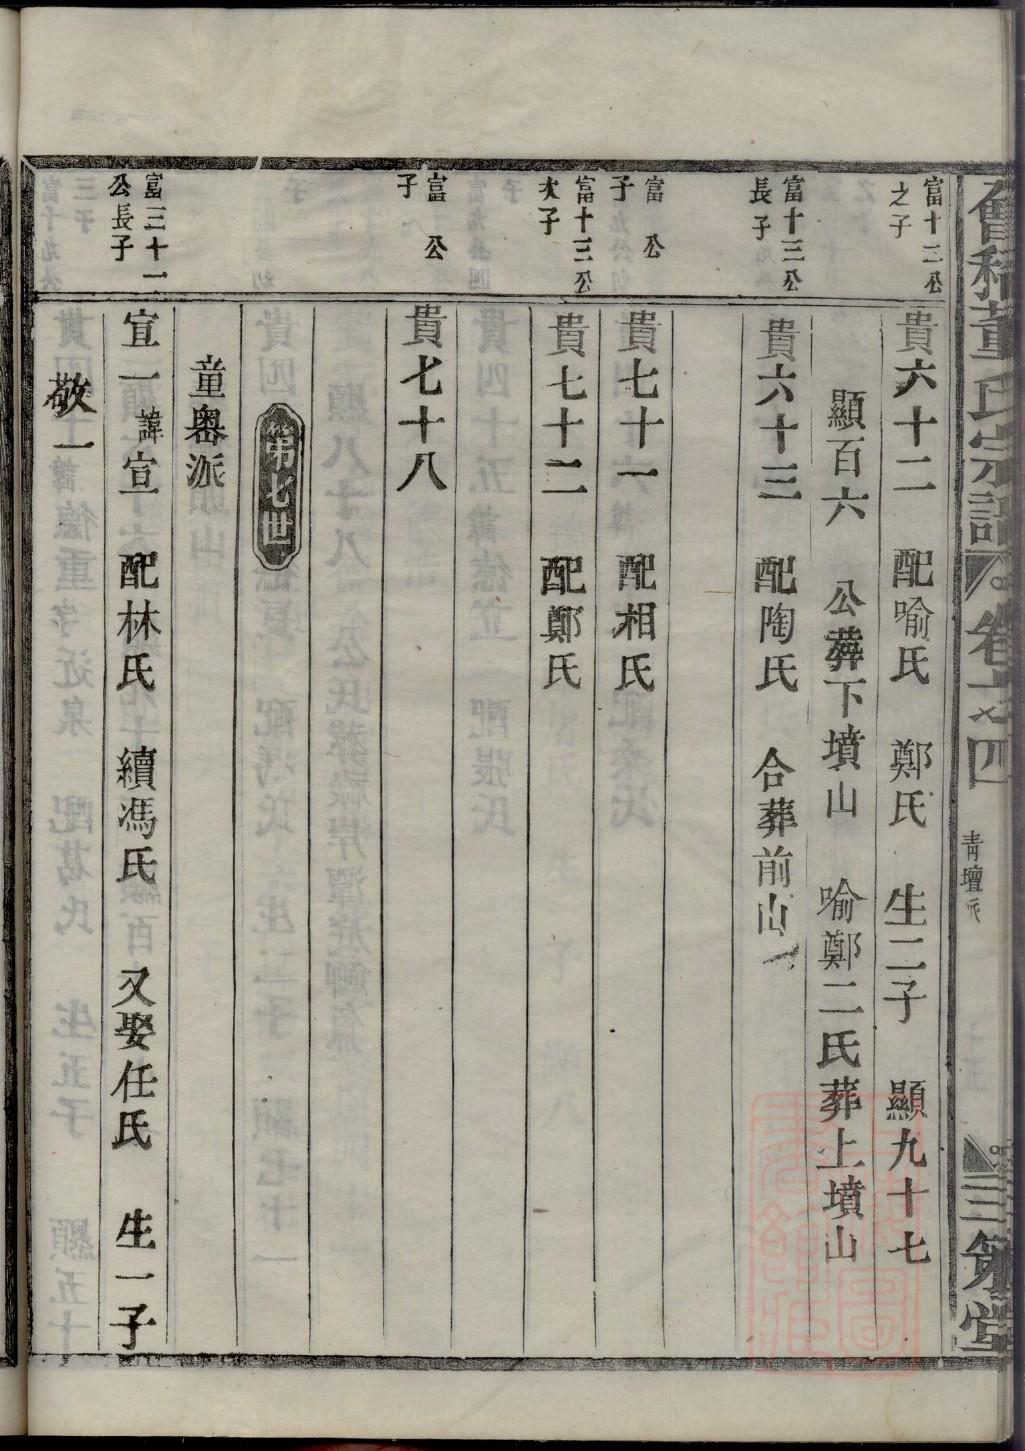 會稽董氏宗譜 卷六之四 青壇派 三策堂
富十三公
之子
貴六十二 配喻氏 鄭氏 生二子 顯九十七
顯百六 公葬下墳山 喻鄭二氏葬上墳山
富十三公
長子
貴六十三 配陶氏 合葬前山
富 公
子
貴七十一 配相氏
富十三公
次子
貴七十二 配鄭氏
富 公
子
貴七十八
第七世
童㟁派
富三十一
公長子
宣一 諱宣 配林氏 續馮氏 又娶任氏 生一子
敬一